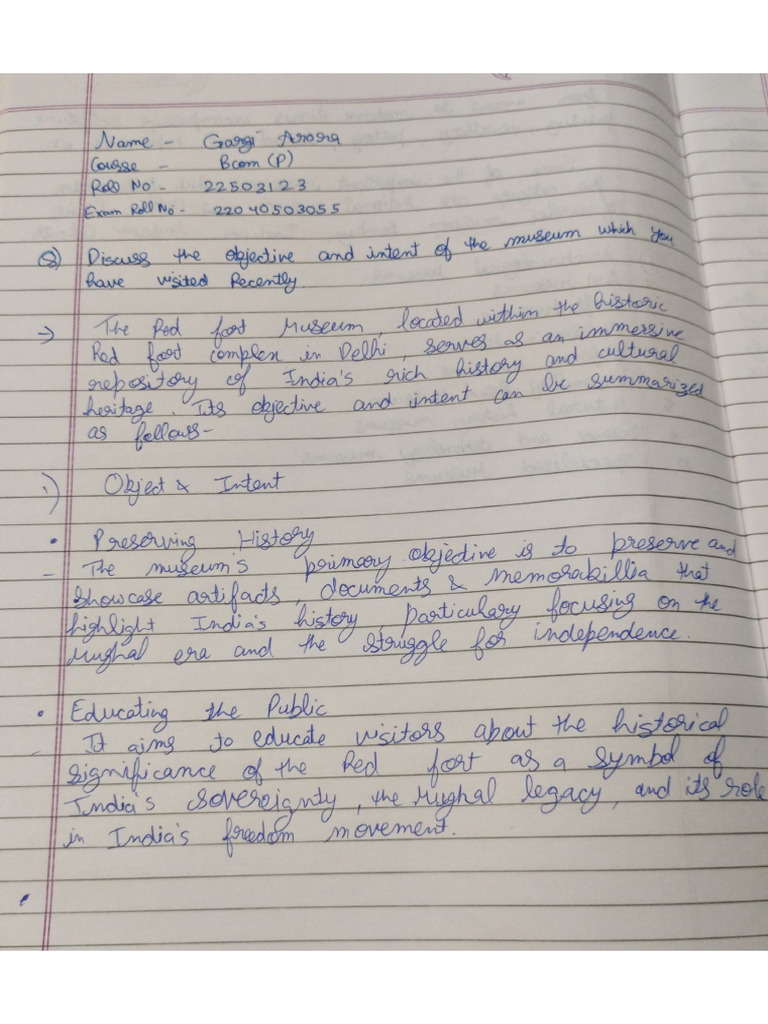 Name - Gargi Arora
Course - Bcom (P)
Roll No - 22503123
Exam Roll No - 22040503055
Q) Discuss the objective and intent of the museum which you
have visited Recently.
→ The Red fort Museum, located within the historic
Red fort complex in Delhi, serves as an immersive
repository of India's rich history and cultural
heritage. Its objective and intent can be summarized
as follows-
1) Object & Intent
• Preserving History
- The museum's primary objective is to preserve and
showcase artifacts, documents & memorabillia that
highlight India's history, particulary focusing on the
Mughal era and the struggle for independence.
• Educating the Public
- It aims to educate visitors about the historical
significance of the Red fort as a symbol of
India's sovereignty, the Mughal legacy, and its role
in India's freedom movement.